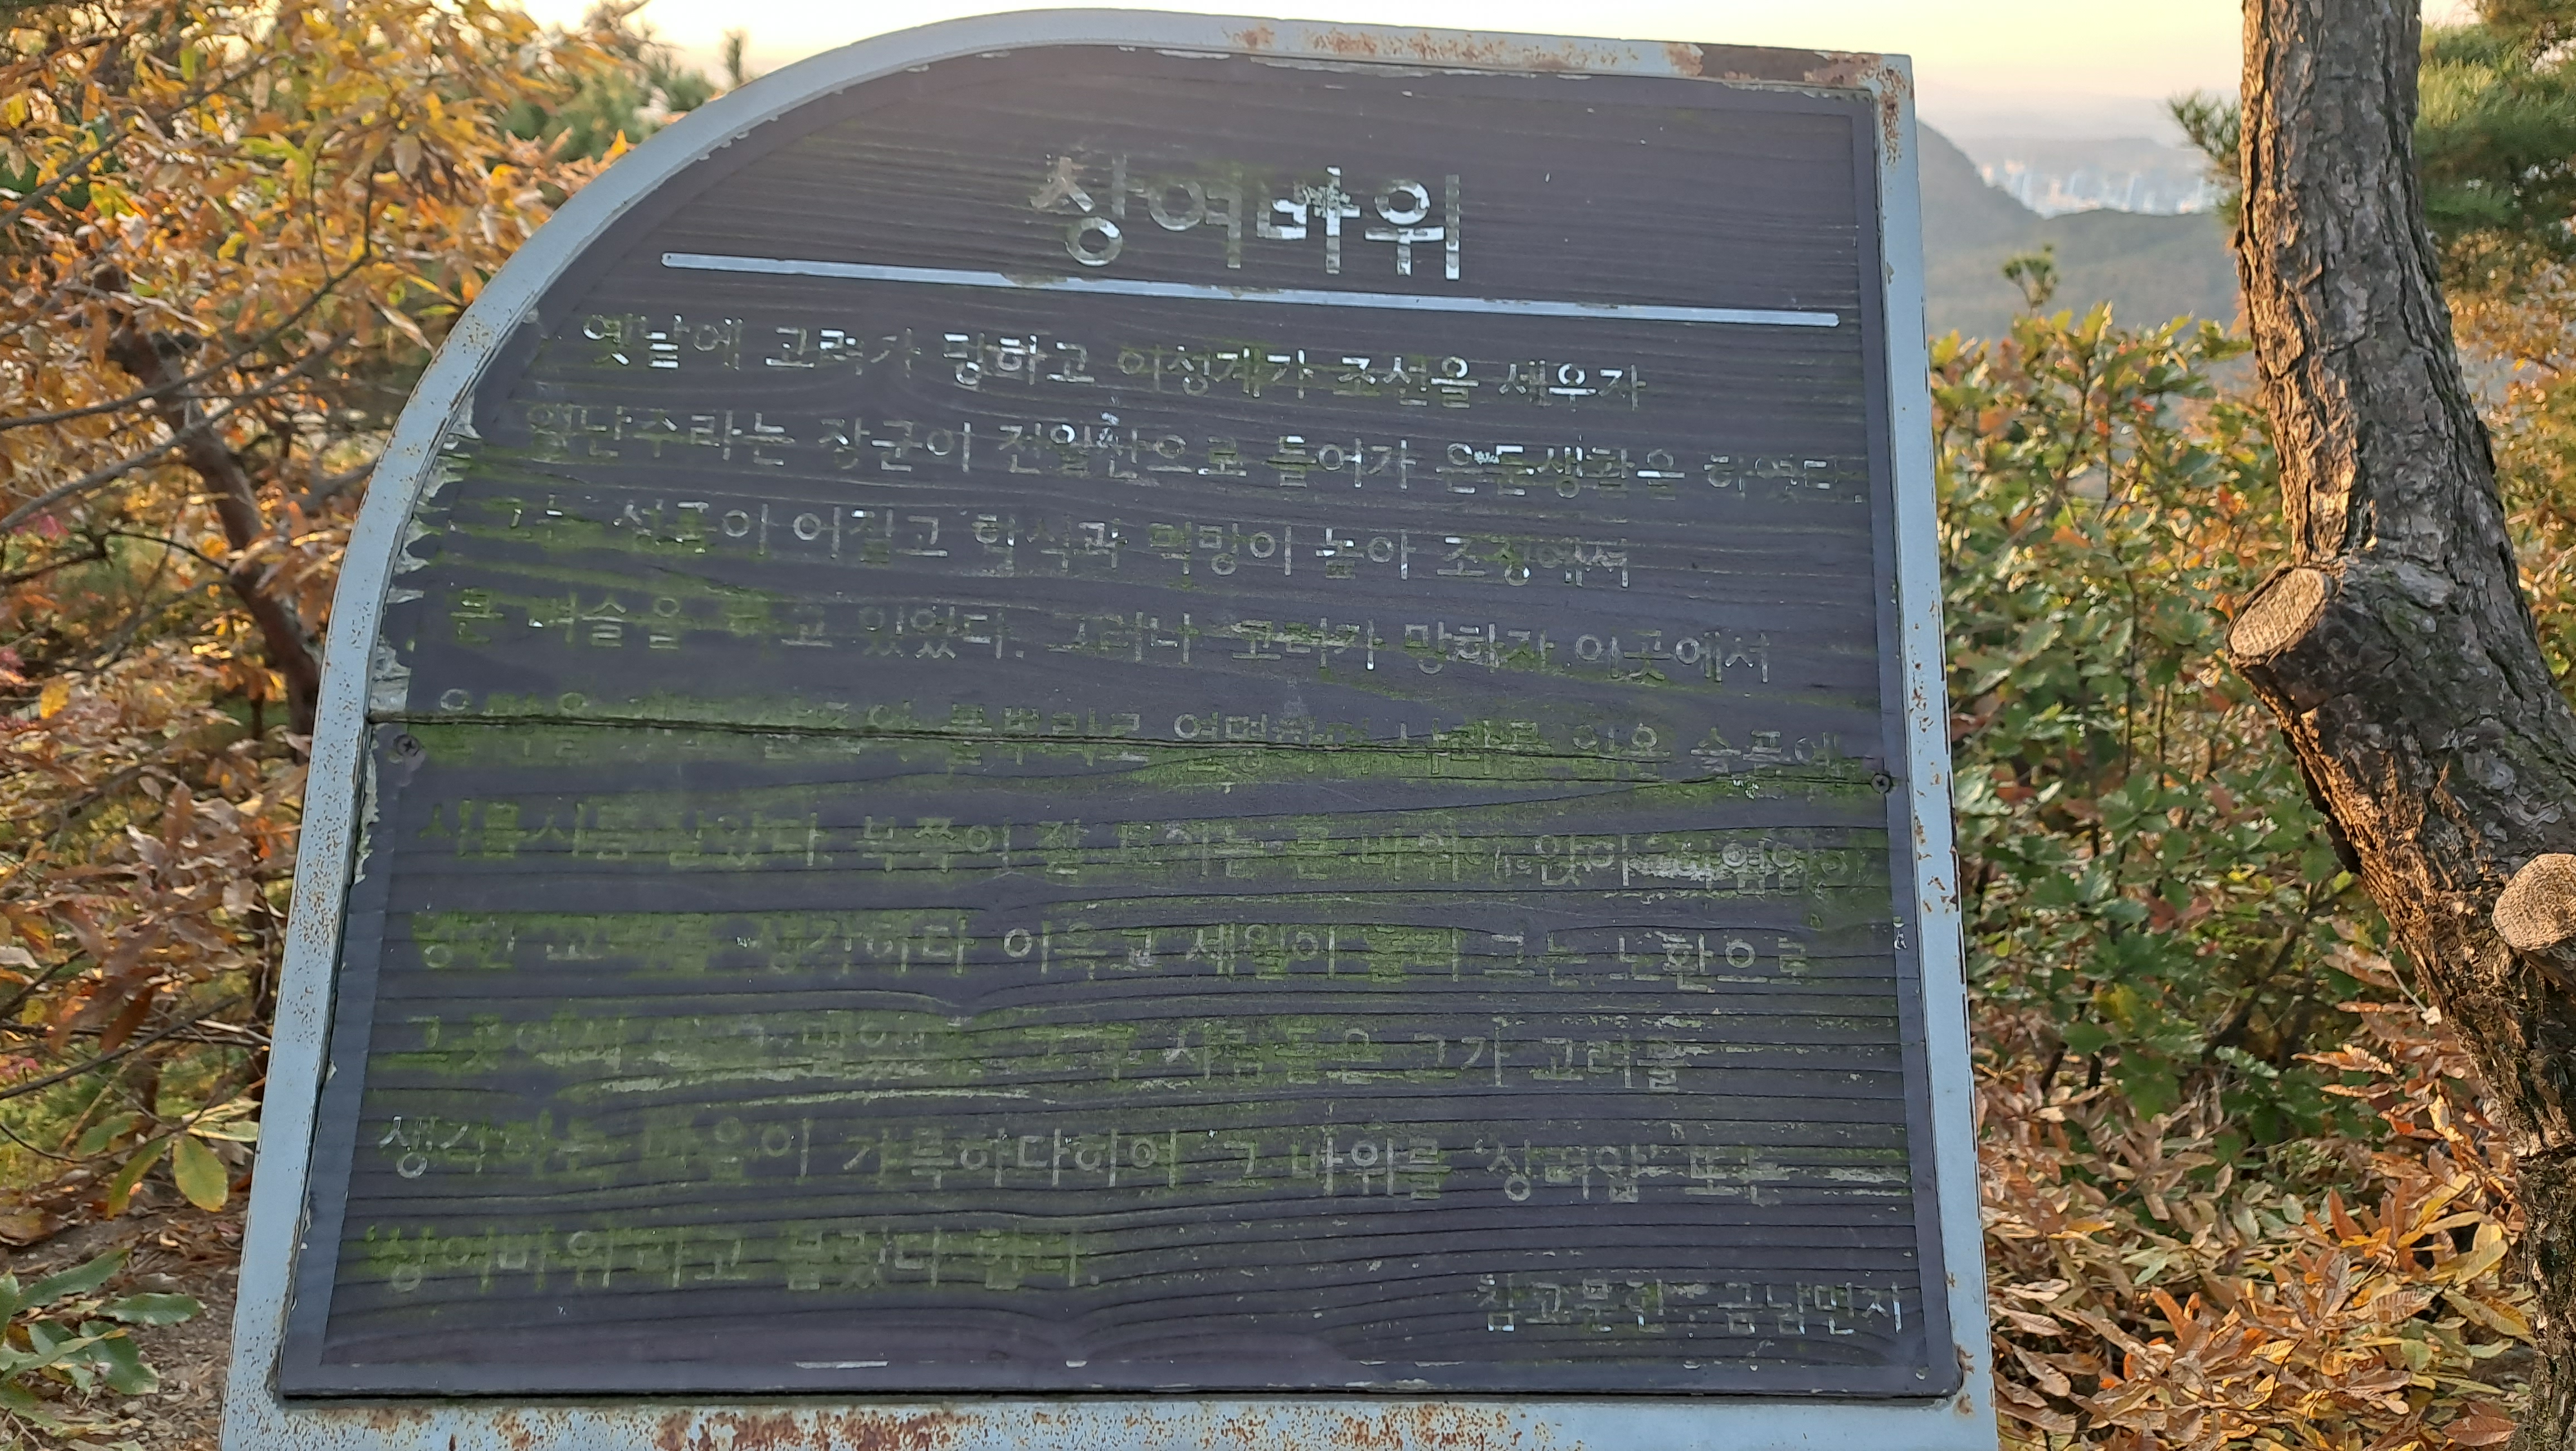 상여바위
옛날에 고려가 망하고 이성계가 조선을 세우자
장군이 전월산으로 들어가 은둔생활을 하였다.
그는 성품이 어질고 학식과 덕망이 높아 조정에서
큰 벼슬을 하고 있었다. 그러나 고려가 망하자 이곳에서
연명하며 나라를 잃은 슬픔에
시름시름 앓았다. 북쪽이 잘 보이는 큰 바위에 앉아
망한 고려를 생각하다 이윽고 세월이 흘러 그는 노환으로
그곳에서 사람들은 그가 고려를
생각하는 마음이 갸륵하다하여 그 바위를 '상려암' 또는
'상여바위'라고 불렀다 한다.
참고문헌 : 금남면지